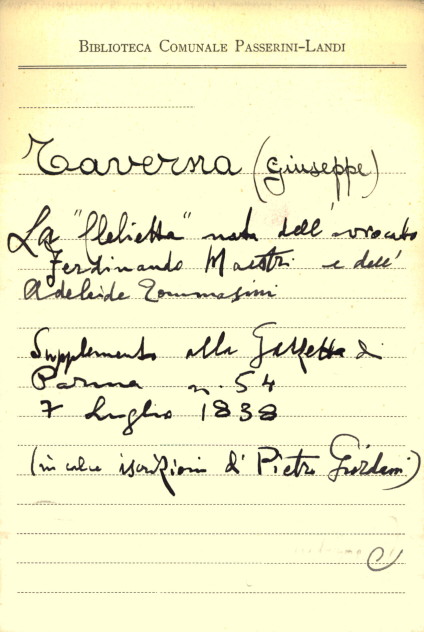 BIBLIOTECA COMUNALE PASSERINI-LANDI
Taverna (Giuseppe)
La "Clelietta" nata dell'avvocato
Ferdinando Maestri e dell'
Adelaide Tommasini
Supplemento alla Gazzetta di
Parma n. 54
7 Luglio 1838
(in calce iscrizioni di Pietro Giordani)
C